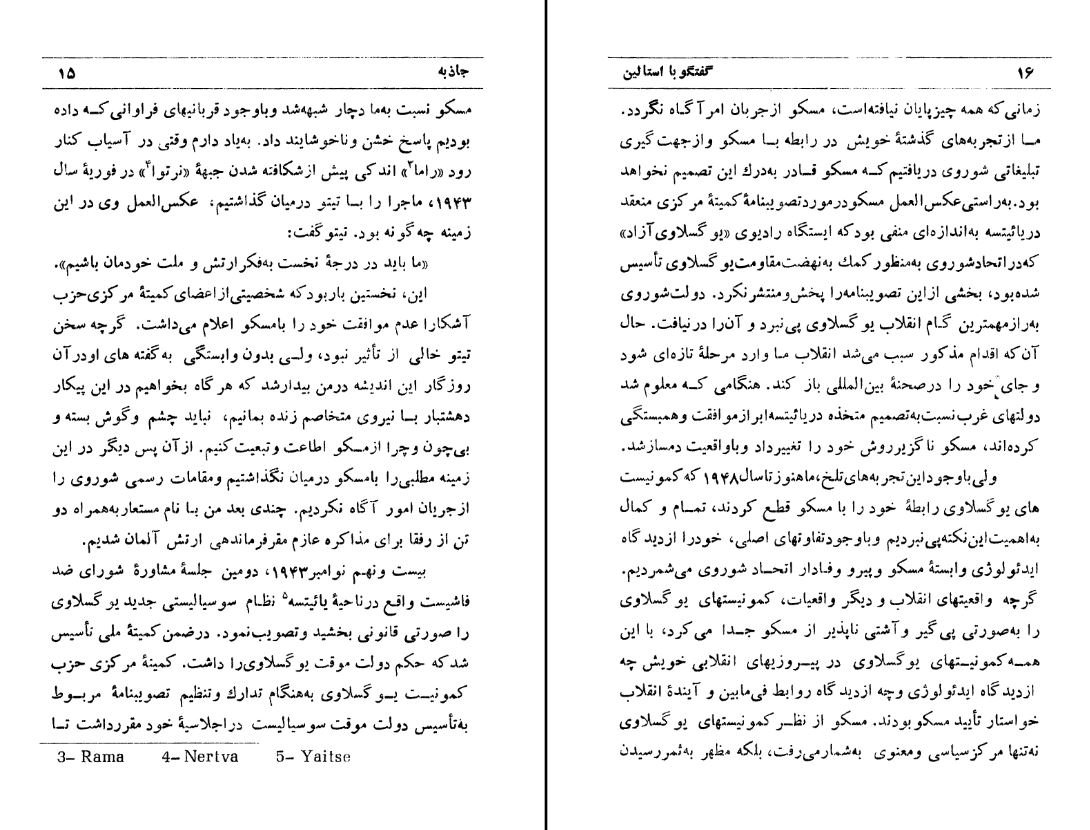 جاذبه ۱۵
مسکو نسبت به‌ما دچار شبهه‌شد وباوجود قربانیهای فراوانی‌که داده
بودیم پاسخ خشن وناخوشایند داد. به‌یاد دارم وقتی در آسیاب کنار
رود «راما۳» اندکی پیش ازشکافته شدن جبههٔ «نرتوا۴» در فوریهٔ سال
۱۹۴۳، ماجرا را با تیتو درمیان گذاشتیم، عکس‌العمل وی در این
زمینه چه‌گونه بود. تیتوگفت:
«ما باید در درجهٔ نخست به‌فکرارتش و ملت خودمان باشیم».
این، نخستین باربودکه شخصیتی‌ازاعضای کمیتهٔ مرکزی‌حزب
آشکارا عدم موافقت خود را بامسکو اعلام می‌داشت. گرچه سخن
تیتو خالی از تأثیر نبود، ولی بدون وابستگی به‌گفته های اودرآن
روزگار این اندیشه درمن بیدارشد که هرگاه بخواهیم در این پیکار
دهشتبار با نیروی متخاصم زنده بمانیم، نباید چشم وگوش بسته و
بی‌چون وچرا ازمسکو اطاعت وتبعیت‌کنیم. ازآن پس دیگر در این
زمینه مطلبی‌را بامسکو درمیان نگذاشتیم ومقامات رسمی شوروی را
ازجریان امور آگاه نکردیم. چندی بعد من با نام مستعاربه‌همراه دو
تن از رفقا برای مذاکره عازم مقرفرماندهی ارتش آلمان شدیم.
بیست ونهم نوامبر۱۹۴۳، دومین جلسهٔ مشاورهٔ شورای ضد
فاشیست واقع درناحیهٔ یائیتسه۵ نظام سوسیالیستی جدید یوگسلاوی
را صورتی قانونی بخشید وتصویب‌نمود. درضمن کمیتهٔ ملی تأسیس
شدکه حکم دولت موقت یوگسلاوی‌را داشت. کمیتهٔ مرکزی حزب
کمونیست یوگسلاوی به‌هنگام تدارك وتنظیم تصویبنامهٔ مربوط
به‌تأسیس دولت موقت سوسیالیست دراجلاسیهٔ خود مقررداشت تا
3– Rama 4– Nertva 5– Yaitse
۱۶ گفتگو با استالین
زمانی‌که همه چیزپایان نیافته‌است، مسکو ازجریان امرآگاه نگردد.
ما ازتجربه‌های گذشتهٔ خویش در رابطه با مسکو وازجهت‌گیری
تبلیغاتی شوروی دریافتیم‌که مسکو قادر به‌درك این تصمیم نخواهد
بود.به‌راستی‌عکس‌العمل مسکودرموردتصویبنامهٔ‌کمیتهٔ مرکزی منعقد
دریائیتسه به‌اندازه‌ای منفی بودکه ایستگاه رادیوی «یوگسلاوی‌آزاد»
که‌دراتحادشوروی به‌منظورکمك به‌نهضت‌مقاومت‌یوگسلاوی تأسیس
شده‌بود، بخشی ازاین تصویبنامه‌را پخش‌ومنتشرنکرد. دولت‌شوروی
به‌رازمهمترین گام انقلاب یوگسلاوی پی‌نبرد و آن‌را درنیافت. حال
آن‌که اقدام مذکور سبب می‌شد انقلاب ما وارد مرحلهٔ تازه‌ای شود
و جای خود را درصحنهٔ بین‌المللی باز کند. هنگامی که معلوم شد
دولتهای غرب‌نسبت‌به‌تصمیم متخذه دریائیتسه‌ابرازموافقت وهمبستگی
کرده‌اند، مسکو ناگزیرروش خود را تغییرداد وباواقعیت دمسازشد.
ولی‌باوجوداین‌تجربه‌های‌تلخ،ماهنوزتاسال۱۹۴۸که‌کمونیست
های یوگسلاوی رابطهٔ خود را با مسکو قطع کردند، تمام و کمال
به‌اهمیت‌این‌نکته‌پی‌نبردیم وباوجودتفاوتهای اصلی، خودرا ازدیدگاه
ایدئولوژی وابستهٔ مسکو وپیرو وفادار اتحاد شوروی می‌شمردیم.
گرچه واقعیتهای انقلاب و دیگر واقعیات، کمونیستهای یوگسلاوی
را به‌صورتی پی‌گیر وآشتی ناپذیر از مسکو جدا می‌کرد، با این
همه‌کمونیستهای یوگسلاوی در پیروزیهای انقلابی خویش چه
ازدیدگاه ایدئولوژی وچه ازدیدگاه روابط فی‌مابین و آیندهٔ انقلاب
خواستار تأیید مسکوبودند. مسکو از نظر کمونیستهای یوگسلاوی
نه‌تنها مرکزسیاسی ومعنوی به‌شمارمی‌رفت، بلکه مظهر به‌ثمررسیدن